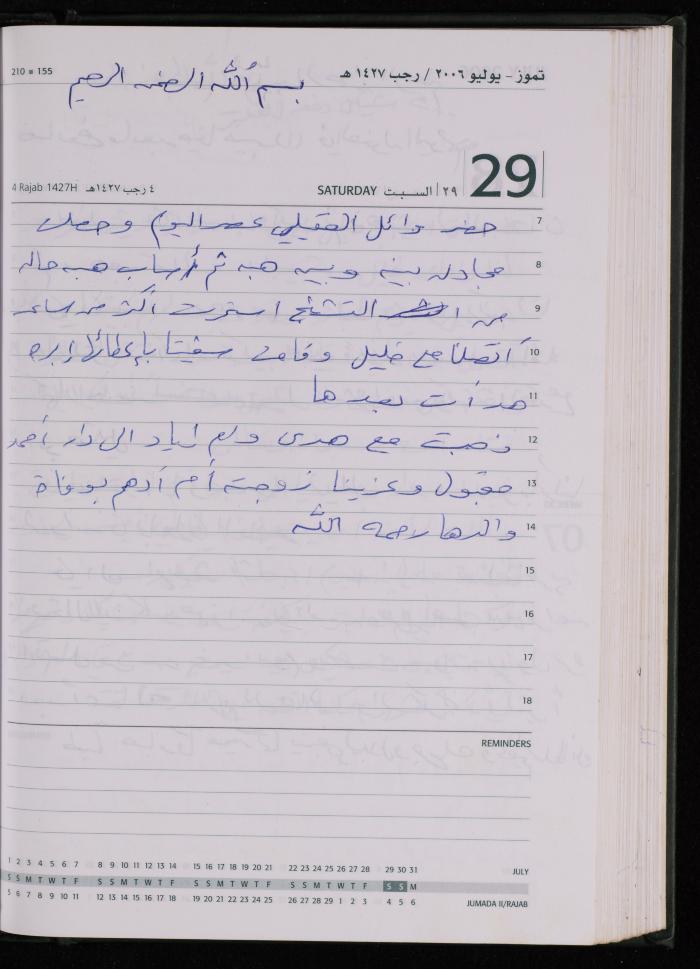 210 ■ 155
تموز - يوليو ٢٠٠٦ / رجب ١٤٢٧ هـ
بسم الله الرحمن الرحيم
4 Rajab 1427H ٤ رجب ١٤٢٧هـ
SATURDAY ٢٩ | السبت 29
7 حضر وائل العقيلي عصر اليوم وحصلت
8 مجادلة بينه وبين هبه ثم أصاب هبه حاله
9 من التشنج استمرت أكثر من ساعه
10 أتصلنا مع خليل وقامت بإعطائها إبره
11 هدأت بعدها
12 ذهبت مع هدى وأم اياد الى دار أحمد
13 مقبول وعزينا زوجته أم أدهم بوفاة
14 والدها رحمه الله
15
16
17
18
REMINDERS
1 2 3 4 5 6 7 8 9 10 11 12 13 14 15 16 17 18 19 20 21 22 23 24 25 26 27 28 29 30 31 JULY
S S M T W T F S S M T W T F S S M T W T F S S M T W T F S S M
5 6 7 8 9 10 11 12 13 14 15 16 17 18 19 20 21 22 23 24 25 26 27 28 29 1 2 3 4 5 6 JUMADA II/RAJAB